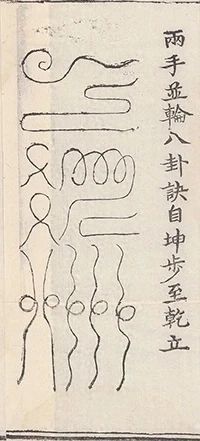 兩手並輪八卦訣自坤步至乾立